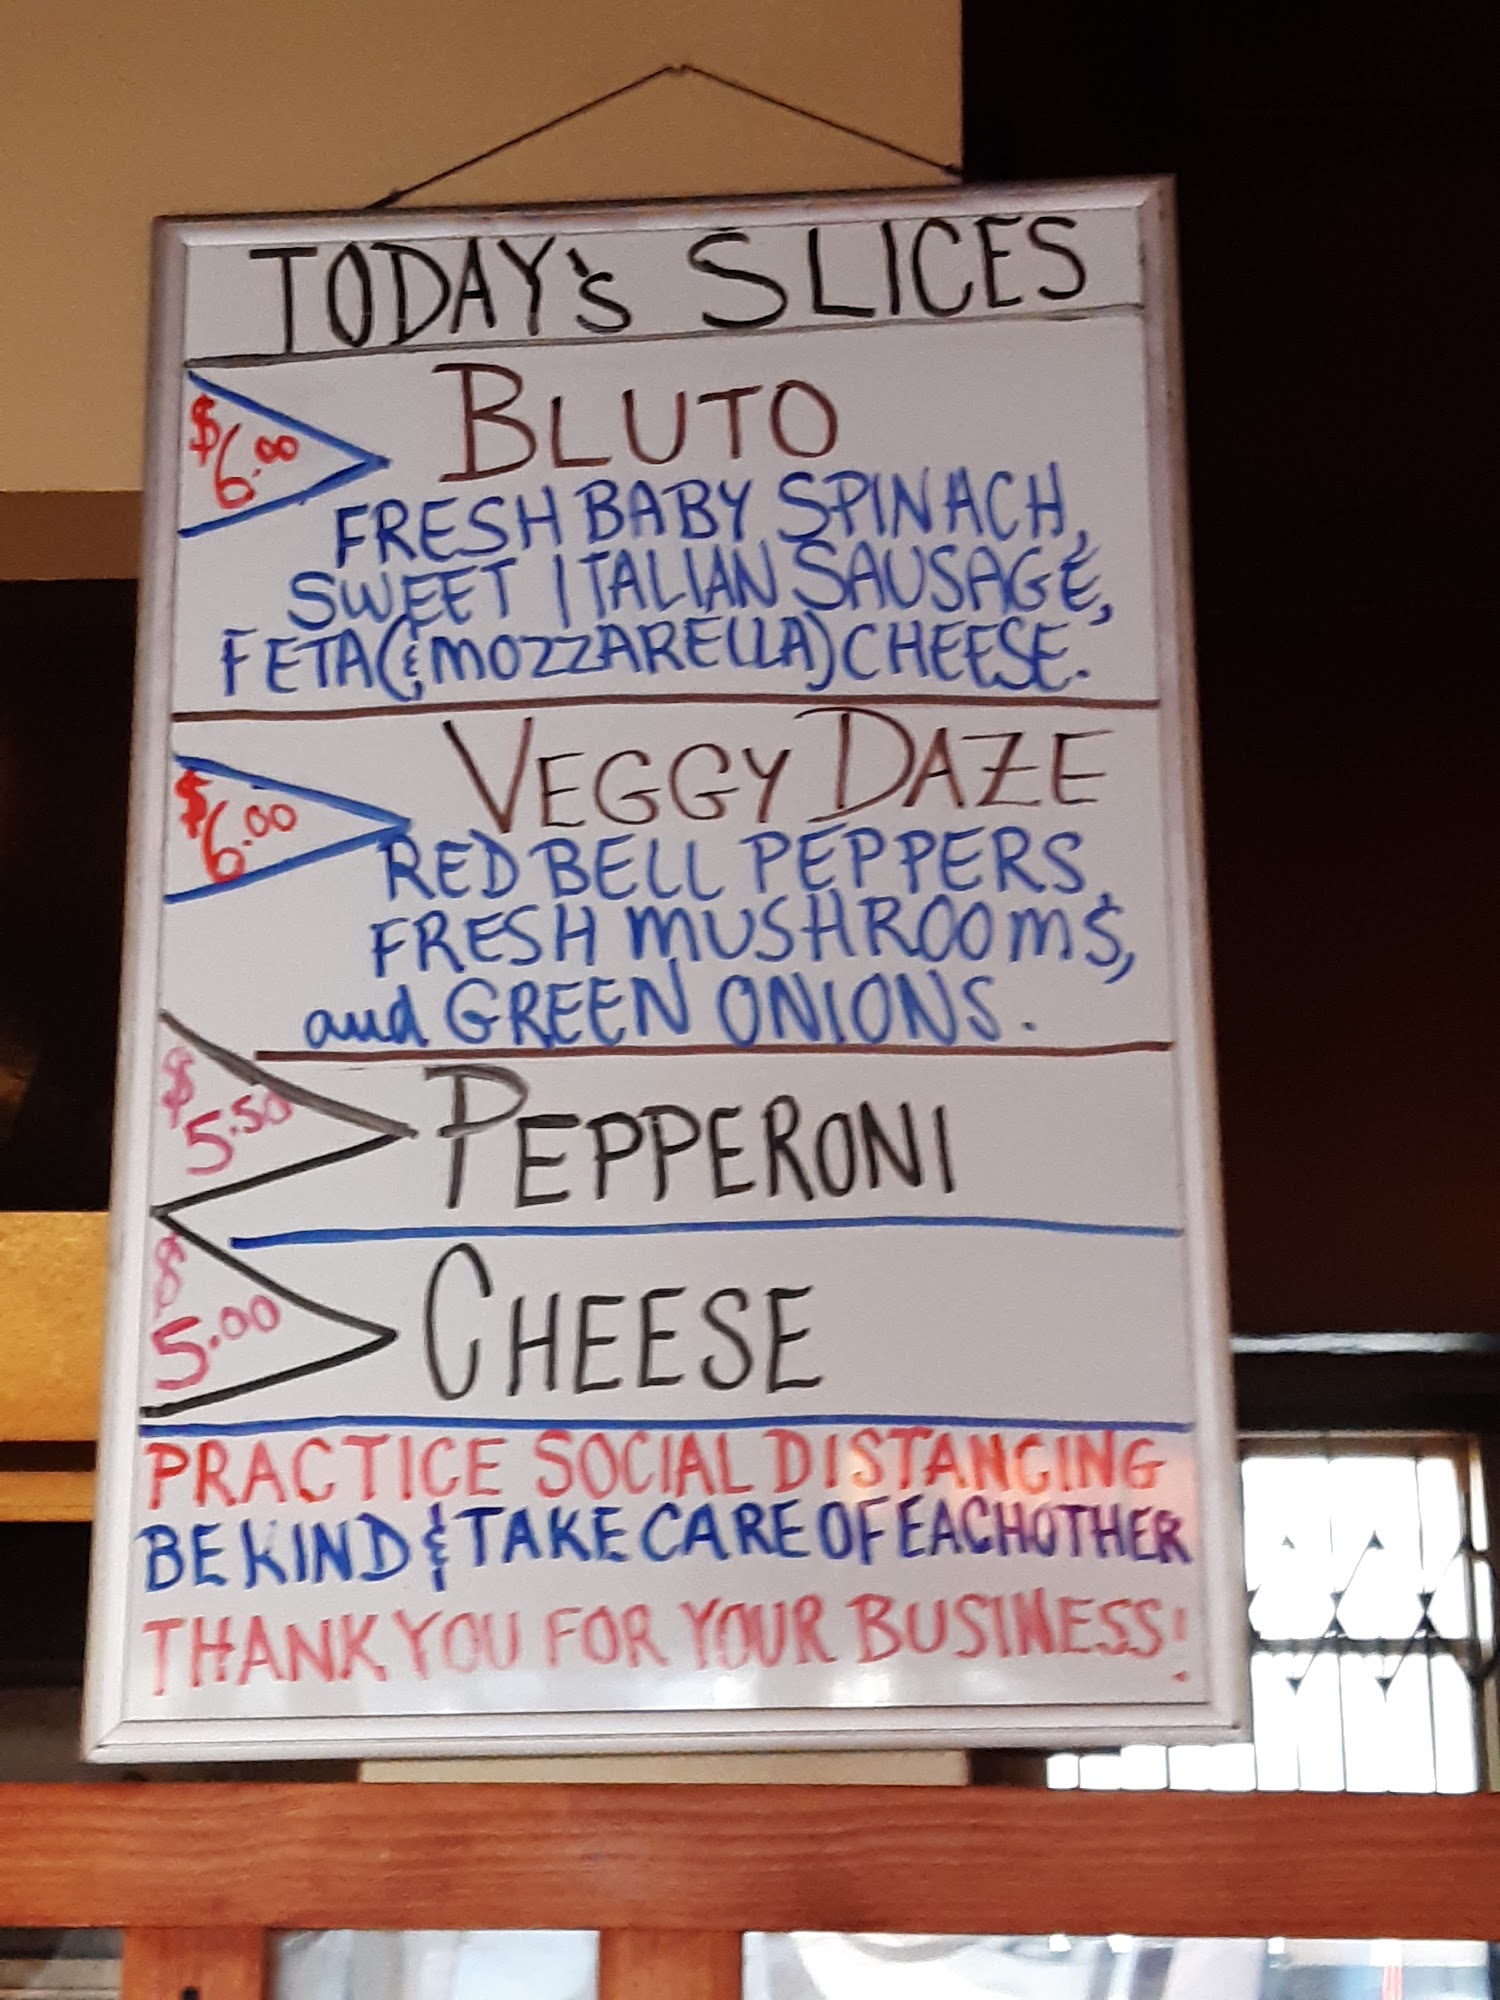 TODAY's SLICES
$6.00 BLUTO
FRESH BABY SPINACH,
SWEET ITALIAN SAUSAGE,
FETA (& MOZZARELLA) CHEESE.
$6.00 VEGGY DAZE
RED BELL PEPPERS,
FRESH MUSHROOMS,
and GREEN ONIONS.
$5.50 PEPPERONI
$5.00 CHEESE
PRACTICE SOCIAL DISTANCING
BE KIND & TAKE CARE OF EACHOTHER
THANK YOU FOR YOUR BUSINESS!